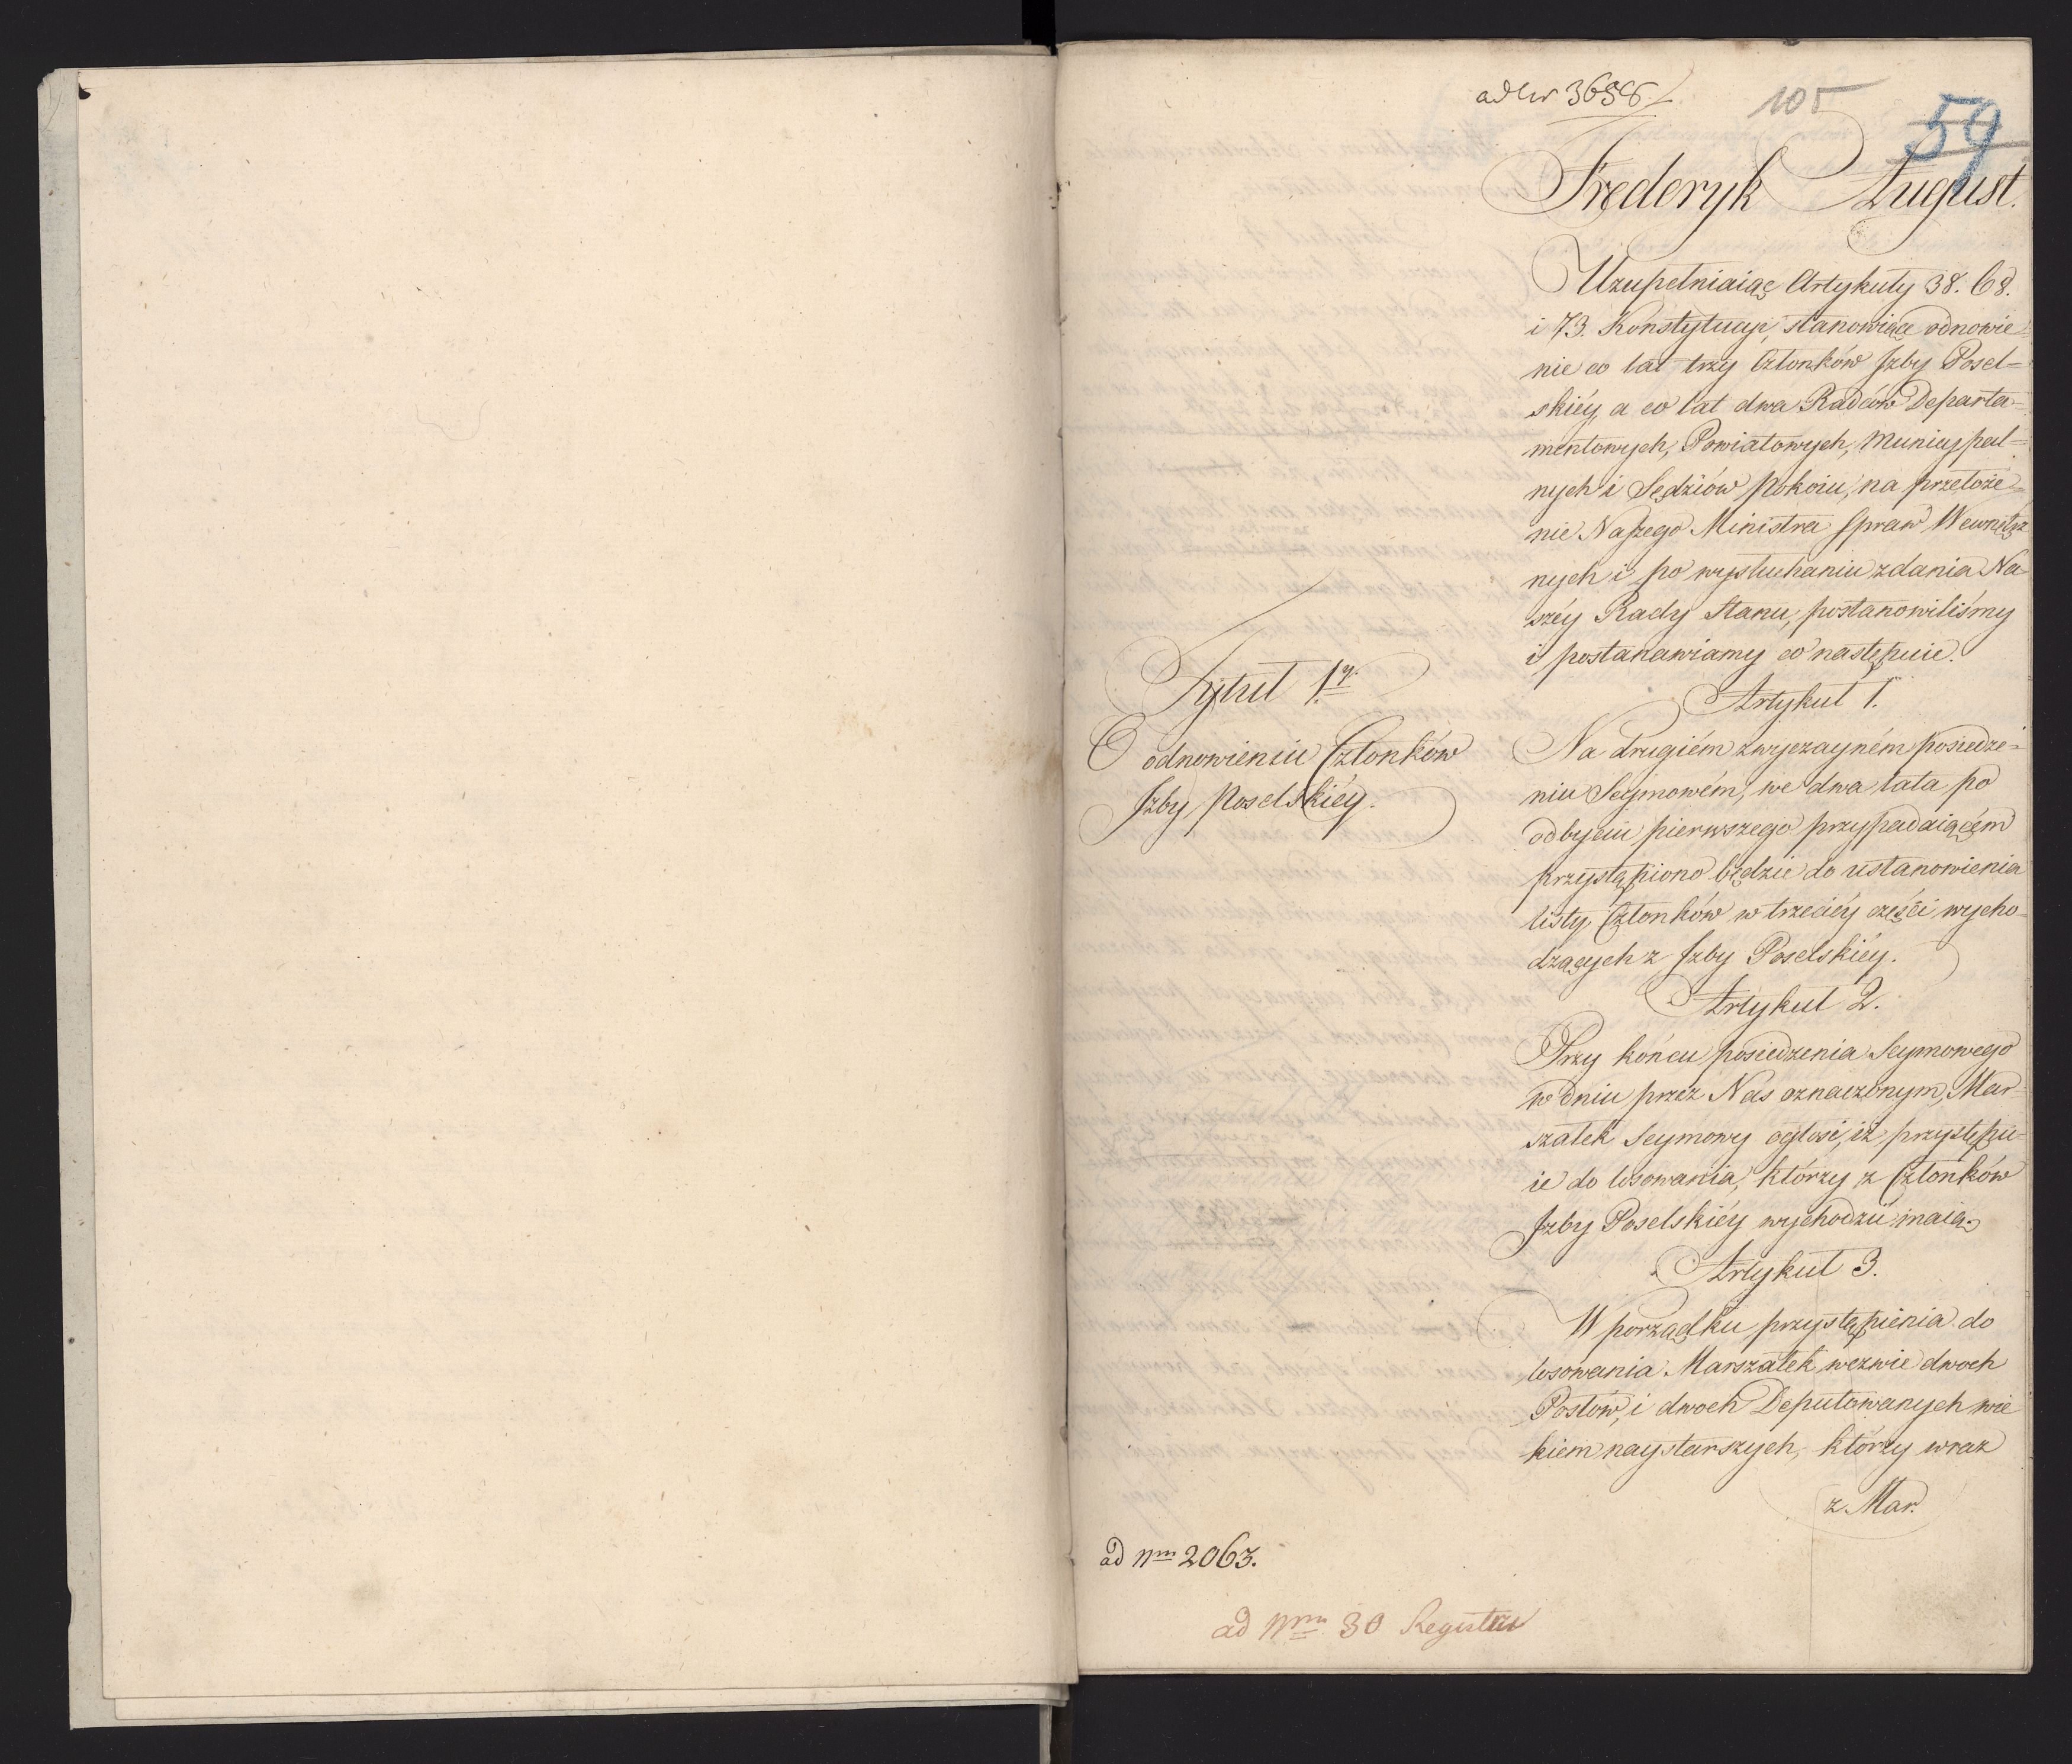 105
59
Fryderyk August.
Uzupełniaiąc Artykuły 38. 68.
i 73. Konstytucyi, stanowiące odnowie-
nie co lat trzy Członków Izby Posel=
skiéy, a co lat dwa Radców Departa-
mentowych, Powiatowych, Municypal=
nych i Sędziów Pokoiu, na przełoże=
nie Naszego Ministra Spraw Wewnętrz
nych i po wysłuchaniu zdania Na
széy Rady Stanu, postanowiliśmy
i postanawiamy co następuie.
Tytuł 1y.
O odnowieniu Członków
Izby Poselskiéy.
Artykuł 1.
Na drugiém zwyczayném posiedze-
niu Seymowém, we dwa lata po
odbyciu pierwszego przypadaiącém
przystąpiono będzie do ustanowienia
listy Członków w trzeciéy części wycho-
dzących z Izby Poselskiéy.
Artykuł 2.
Przy końcu posiedzenia Seymowego
w dniu przez Nas oznaczonym, Mar-
szałek Seymowy ogłosi, iż przystępu-
ie do losowania, którzy z Członków
Izby Poselskiéy wychodzić maią.
Artykuł 3.
W porządku przystąpienia do
losowania Marszałek wezwie dwoch
Posłów, i dwoch Deputowanych wie
kiem naystarszych, którzy wraz
z Mar.
ad Nrm 2063.
ad Nrm 30 Registru